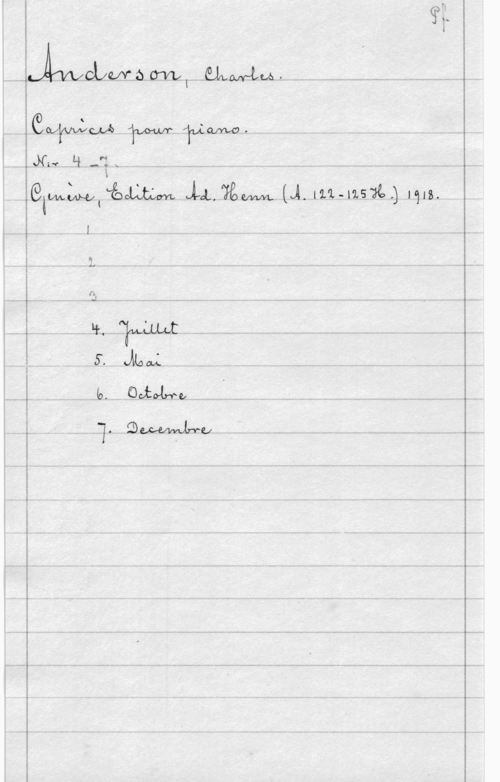 Pf.
Anderson, Charles.
Caprices pour piano.
Nr 4-7.
Genève, Édition Ad. Henn (A. 122-125 H.) 1918.
1
2
3
4. Juillet
5. Mai
6. Octobre
7. Decembre